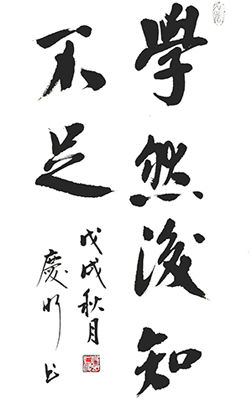 學然後知
不足
戊戌秋月
慶明书